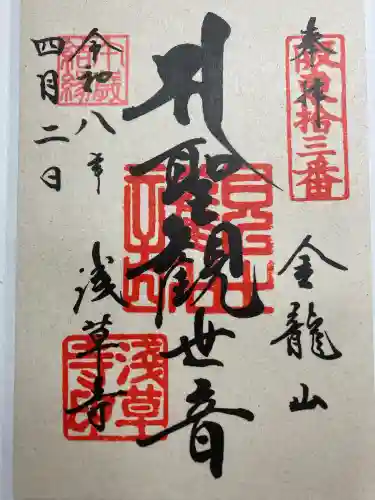 奉拝
坂東拾三番
金龍山
聖観世音
浅草寺
令和八年
四月二日
浅草寺